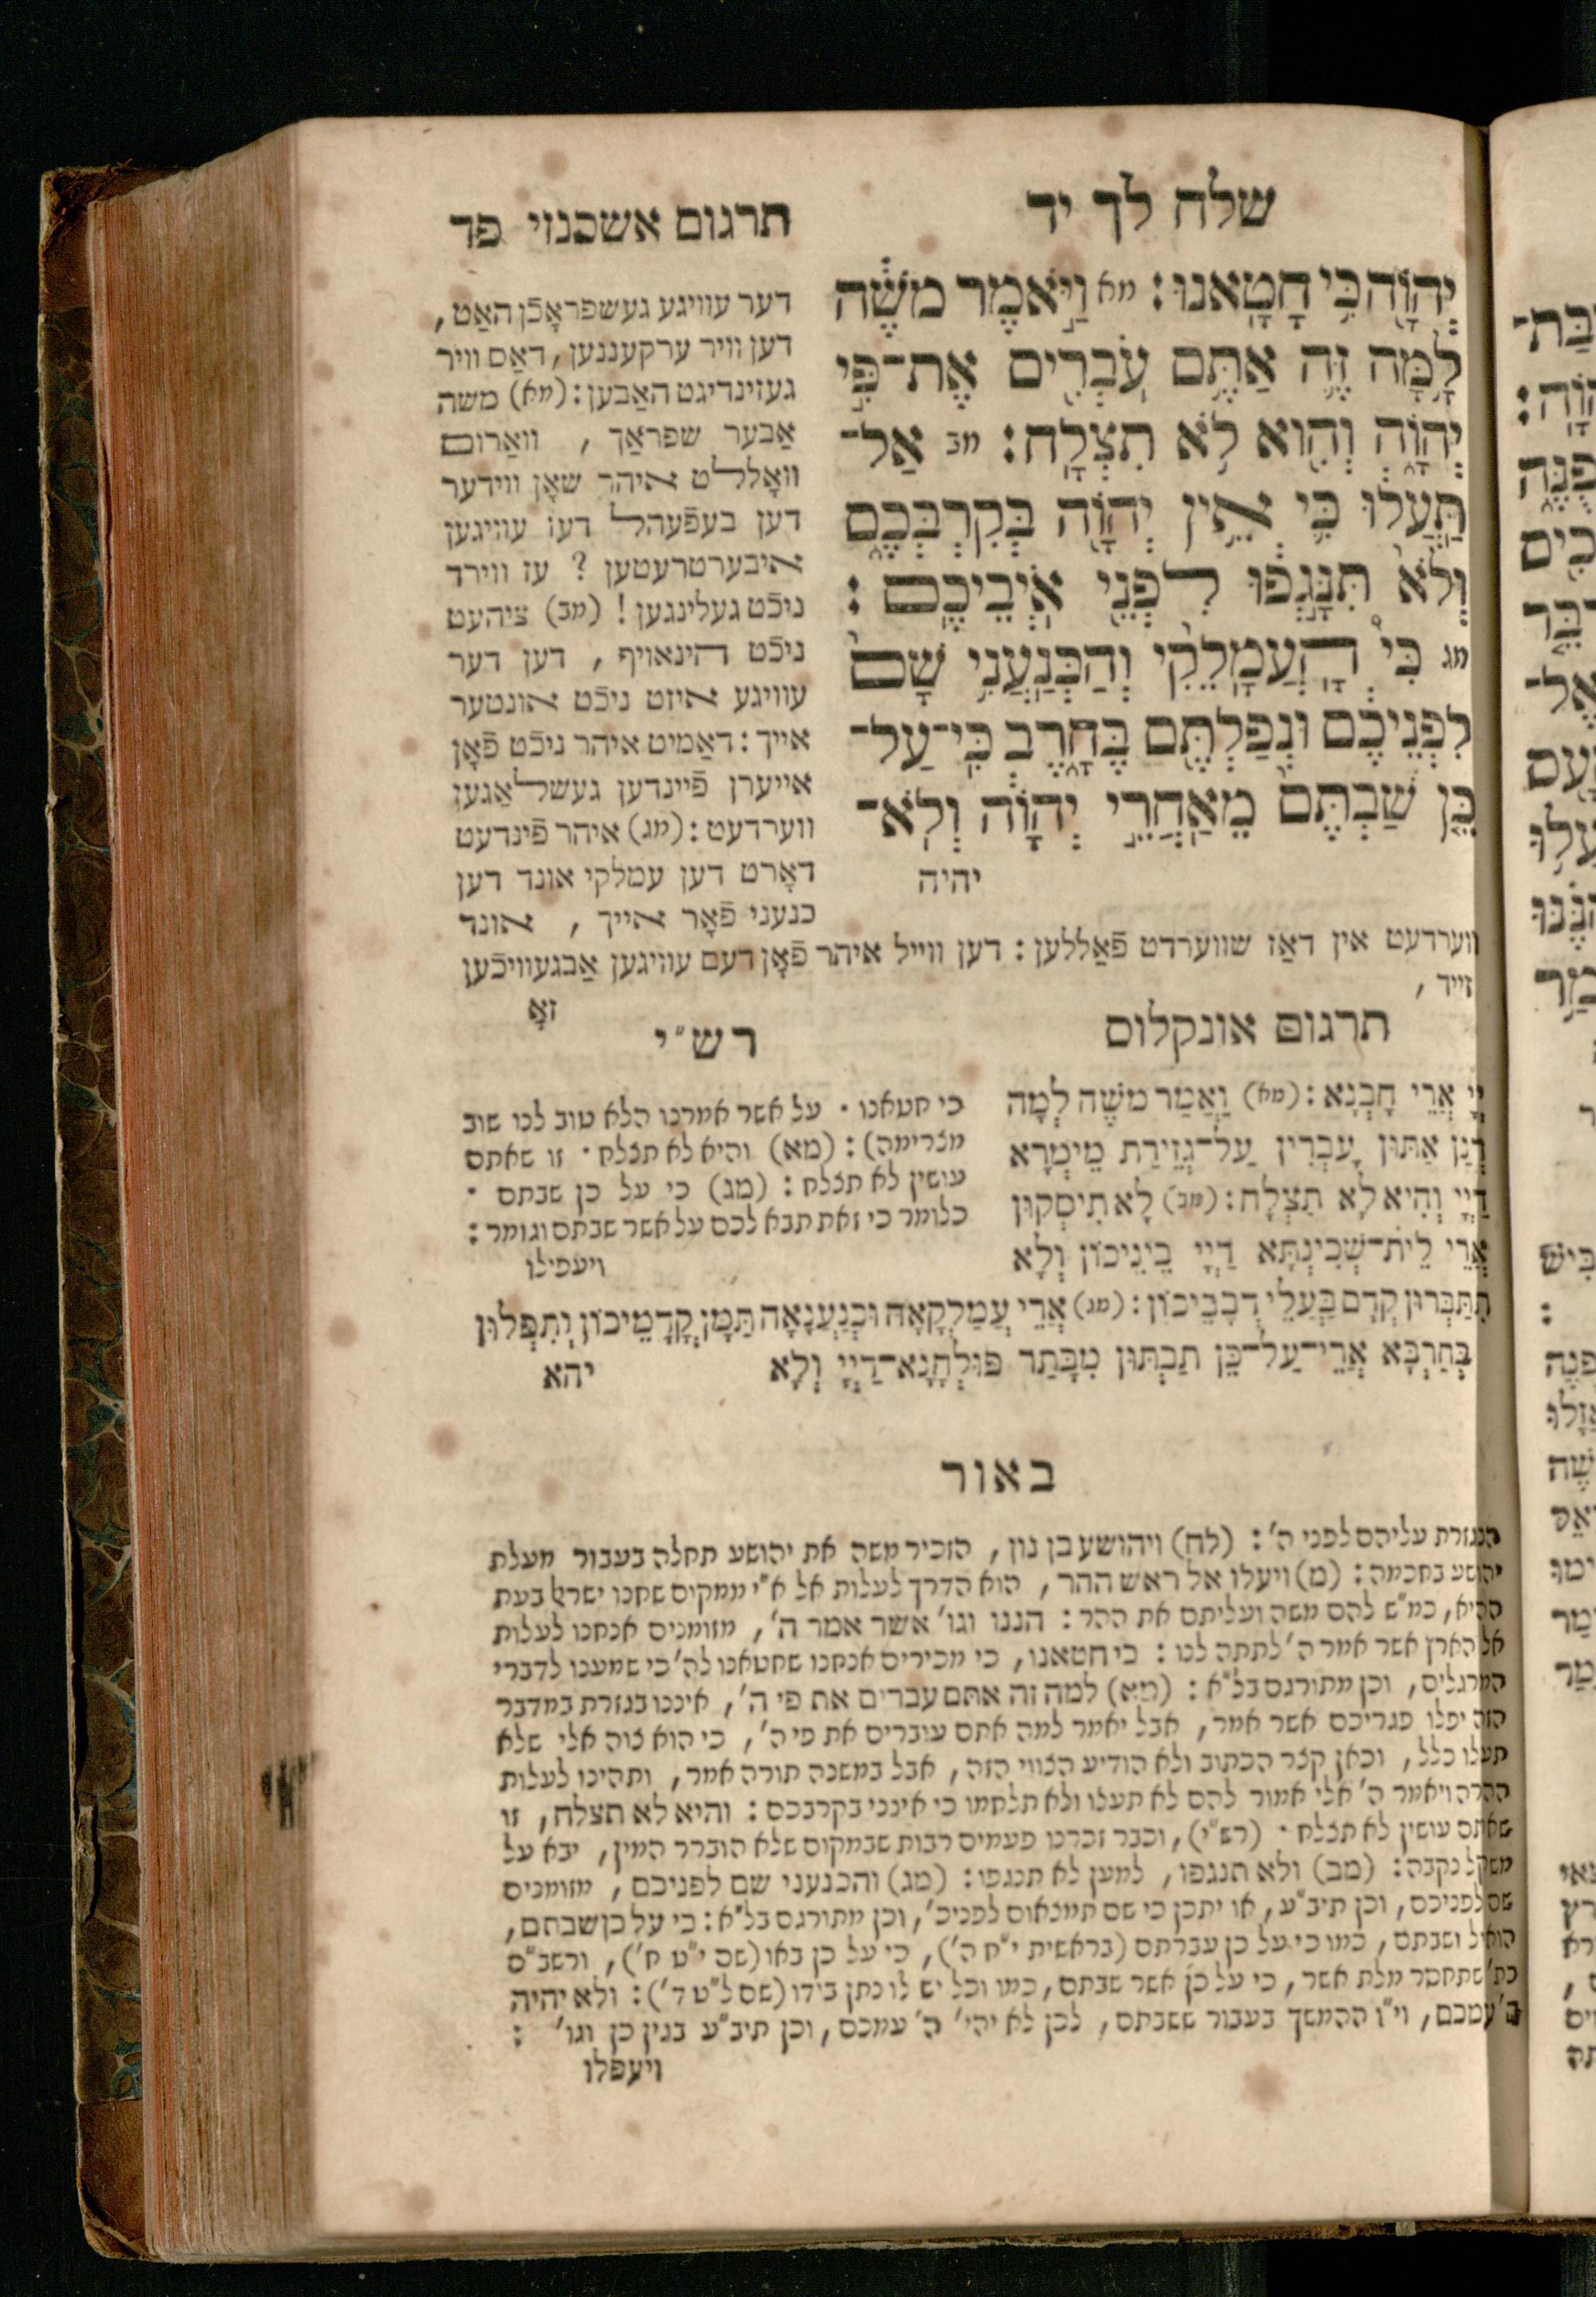 שלח לך יד
תרגום אשכנזי פד
יְהוָֹה כִּי חָטָאנוּ: מא וַיֹּאמֶר משֶׁה
לָמָּה זֶּה אַתֶּם עֹבְרִים אֶת־פִּי
יְהוָֹה וְהִוא לֹא תִצְלָח: מב אַל־
תַּעֲלוּ כִּי אֵין יְהוָֹה בְּקִרְבְּכֶם
וְלֹא תִּנָּגְפוּ לִפְנֵי אֹיְבֵיכֶם:
מג כִּי הָעֲמָלֵקִי וְהַכְּנַעֲנִי שָׁם
לִפְנֵיכֶם וּנְפַלְתֶּם בֶּחָרֶב כִּי־עַל־
כֵּן שַׁבְתֶּם מֵאַחֲרֵי יְהוָֹה וְלֹא־
יהיה
דער עוויגע געשפראָכֿן האַט,
דען וויר ערקעננען, דאַס וויר
געזינדיגט האַבען: (מא) משה
אַבער שפראַך, וואַרום
וואָללט איהר שאָן ווידער
דען בעפֿעהל דעז עוויגען
איבערטרעטען? עז ווירד
ניכֿט געלינגען! (מב) ציהעט
ניכֿט הינאויף, דען דער
עוויגע איזט ניכֿט אונטער
אייך: דאַמיט איהר ניכֿט פֿאָן
אייערן פֿיינדען געשלאַגען
ווערדעט: (מג) איהר פֿינדעט
דאָרט דען עמלקי אונד דען
כנעני פֿאָר אייך, אונד
ווערדעט אין דאַז שווערדט פֿאַללען: דען ווייל איהר פֿאָן דעם עוויגען אַבגעוויכֿען
זייד,
זאָ
תרגום אונקלוס
יְיָ אֲרֵי חָבְנָא: (מא) וַאֲמַר משֶׁה לְמָה
דְנַן אַתּוּן עָבְרִין עַל־גְּזֵירַת מֵימְרָא
דַיְיָ וְהִיא לָא תַצְלָח: (מב) לָא תִיסְקוּן
אֲרֵי לֵית־שְׁכִינְתָּא דַיְיָ בֵּינֵיכוֹן וְלָא
תִתַּבְּרוּן קְדָם בַּעֲלֵי דְבָבֵיכוֹן: (מג) אֲרֵי עֲמַלְקָאָה וּכְנַעֲנָאָה תַּמָּן קֳדָמֵיכוֹן וְתִפְּלוּן
בְּחַרְבָּא אֲרֵי־עַל־כֵּן תַּבְתּוּן מִבָּתַר פּוּלְחָנָא־דַיְיָ וְלָא
יהא
רש״י
כי חטאנו. על אשר אמרנו הלא טוב לנו שוב
מצרימה): (מא) והיא לא תצלח. זו שאתם
עושין לא תצלח: (מג) כי על כן שבתם.
כלומר כי זאת תבא לכם על אשר שבתם וגומר:
ויעפילו
באור
הנגזרת עליהם לפני ה': (לח) ויהושע בן נון, הזכיר משה את יהושע תחלה בעבור מעלת
יהושע בחכמה: (מ) ויעלו אל ראש ההר, הוא הדרך לעלות אל א״י ממקום שחנו ישראל בעת
ההיא, כמ״ש להם משה ועליתם את ההר: הננו וגו' אשר אמר ה', מזומנים אנחנו לעלות
אל הארץ אשר אמר ה' לתתה לנו: כי חטאנו, כי מכירים אנחנו שחטאנו לה' כי שמענו לדברי
המרגלים, וכן מתורגם בל״א: (מא) למה זה אתם עברים את פי ה', איננו בגזרת במדבר
הזה יפלו פגריכם אשר אמר, אבל יאמר למה אתם עוברים את פי ה', כי הוא צוה אלי שלא
תעלו כלל, וכאן קצר הכתוב ולא הודיע הצווי הזה, אבל במשנה תורה אמר, ותהינו לעלות
ההרה ויאמר ה' אלי אמור להם לא תעלו ולא תלחמו כי אינני בקרבכם: והיא לא תצלח, זו
שאתם עושין לא תצלח. (רש״י), וכבר זכרנו פעמים רבות שבמקום שלא הוברר המין, יבא על
משקל נקבה: (מב) ולא תנגפו, למען לא תנגפו: (מג) והכנעני שם לפניכם, מזומנים
שם לפניכם, וכן תיב״ע, או יתכן כי שם תמצאום לפניכ', וכן מתורגם בל״א: כי על כן שבתם,
הואיל ושבתם, כמו כי על כן עברתם (בראשית י״ח ה'), כי על כן באו (שם י״ט ח'), ורשב״ם
כת' שתחסר מלת אשר, כי על כן אשר שבתם, כמו וכל יש לו נתן בידו (שם ל״ט ד'): ולא יהיה
ה' עמכם, וי״ו ההמשך בעבור ששבתם, לכן לא יהי' ה' עמכם, וכן תיב״ע בגין כן וגו':
ויעפלו